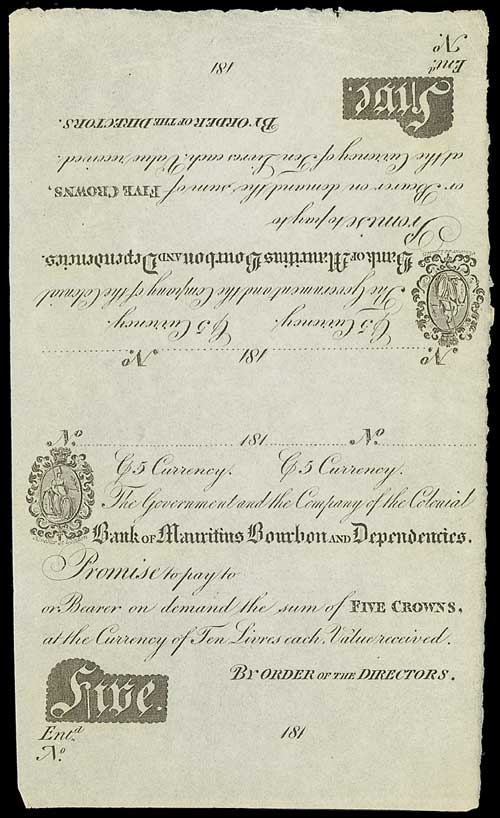 Nº 181 Nº
₵5 Currency. ₵5 Currency.
The Government and the Company of the Colonial
Bank of Mauritius Bourbon and Dependencies.
Promise to pay to
or Bearer on demand the sum of FIVE CROWNS,
at the Currency of Ten Livres each, Value received.
BY ORDER OF THE DIRECTORS.
Five
Entd 181
Nº
Nº 181 Nº
₵5 Currency. ₵5 Currency.
The Government and the Company of the Colonial
Bank of Mauritius Bourbon and Dependencies.
Promise to pay to
or Bearer on demand the sum of FIVE CROWNS,
at the Currency of Ten Livres each, Value received.
BY ORDER OF THE DIRECTORS.
Five
Entd 181
Nº